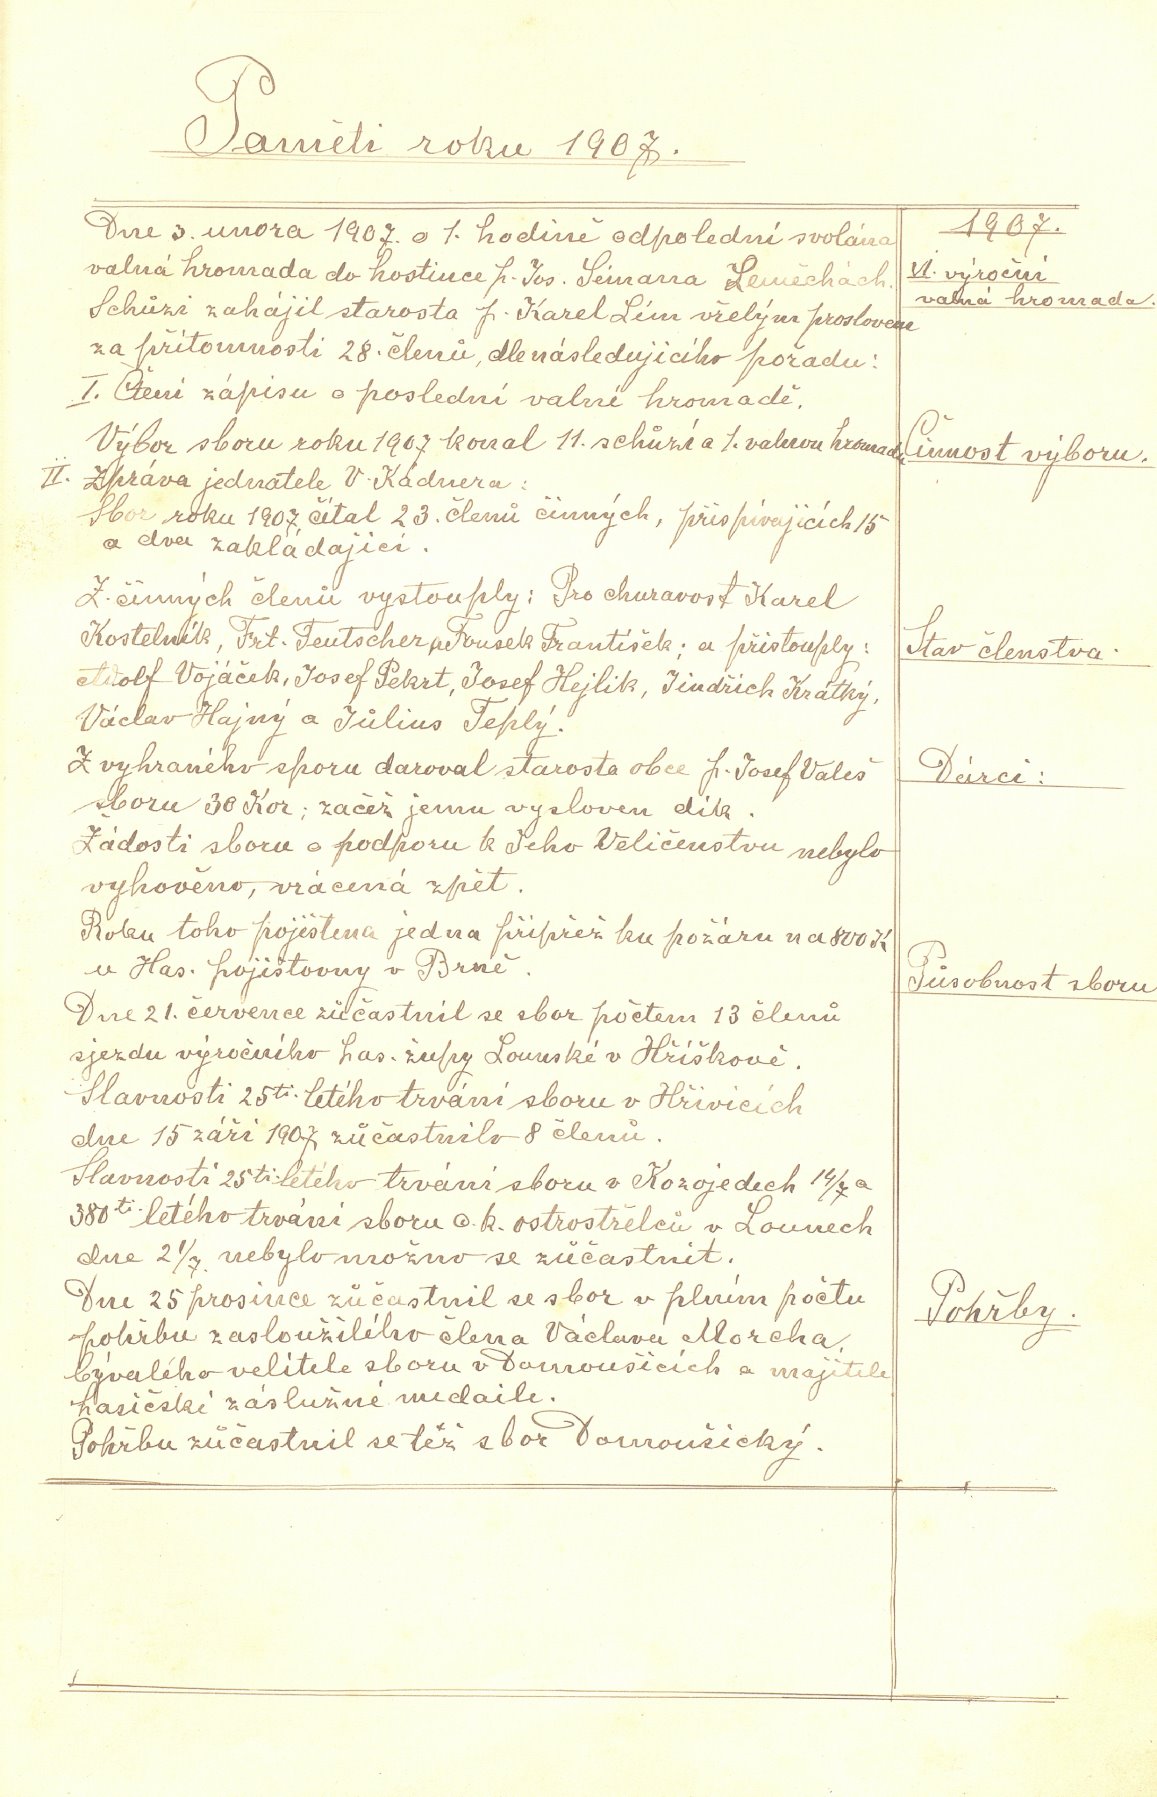 Paměti roku 1907.
Dne 3. února 1907. o 1. hodině odpolední svolána
1907.
valná hromada do hostince p. Jos. Simana Lenešchách.
VI. výroční
valná hromada.
Schůzi zahájil starosta p. Karel Lím vřelým proslovem
za přítomnosti 28. členů, dle následujícího pořadu:
I. Čtení zápisu o poslední valné hromadě.
Výbor sboru roku 1907 konal 11. schůzí a 1. valnou hromadu
Činnost výboru.
II. Zpráva jednatele V. Kádnera:
Sbor roku 1907 čítal 23. členů činných, přispívajících 15
a dva zakládající.
Z činných členů vystouply: Pro churavost Karel
Kostelník, Frt. Teutscher, Fousek František; a přistouply:
Stav členstva.
Adolf Vojáček, Josef Pekrt, Josef Hejlik, Jindřich Krátký,
Václav Hajný a Július Teplý.
Z vyhraného sporu daroval starosta obce p. Josef Valeš
Dárci:
sboru 30 Kor; začež jemu vysloven dík.
Žádosti sboru o podporu k Jeho Veličenstvu nebylo
vyhověno, vrácená zpět.
Roku toho pojištena jedna přípřež ku požáru na 800 K
u Has. pojišťovny v Brně.
Působnost sboru
Dne 21. července zůčastnil se sbor počtem 13 členů
sjezdu výročního has. župy Lounské v Hříškově.
Slavnosti 25ti. letého trvání sboru v Hřivicích
dne 15 září 1907 zůčastnilo 8 členů.
Slavnosti 25ti letého trvání sboru v Kozojedech 14/7 a
380ti. letého trvání sboru c. k. ostrostřelců v Lounech
dne 21/7. nebylo možno se zůčastnit.
Dne 25 prosince zůčastnil se sbor v plném počtu
Pohřby.
pohřbu zasloužilého člena Václava Morcha,
bývalého velitele sboru v Domoušicích a majitele
hasičskí záslužné medaile.
Pohřbu zůčastnil se též sbor Domoušický.